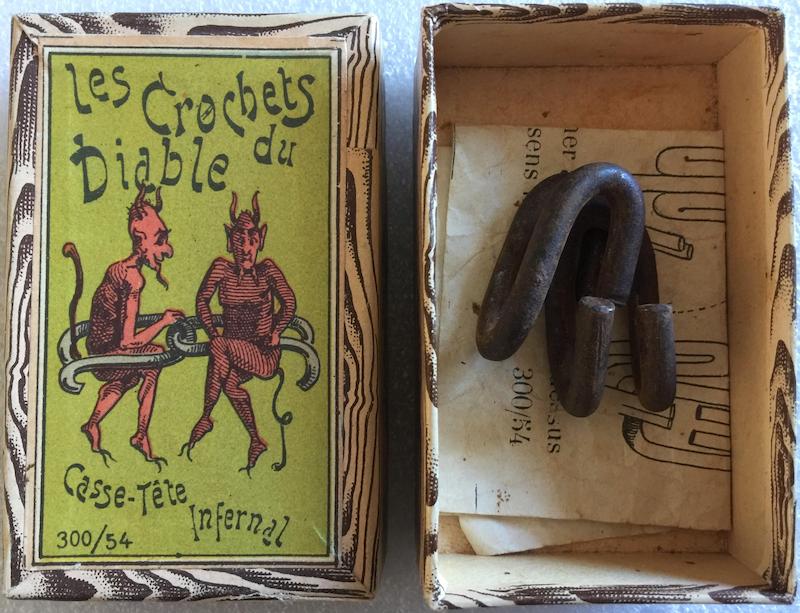 les
Crochets
du
Diable
Casse-Tête
Infernal
300/54
sens
300/54